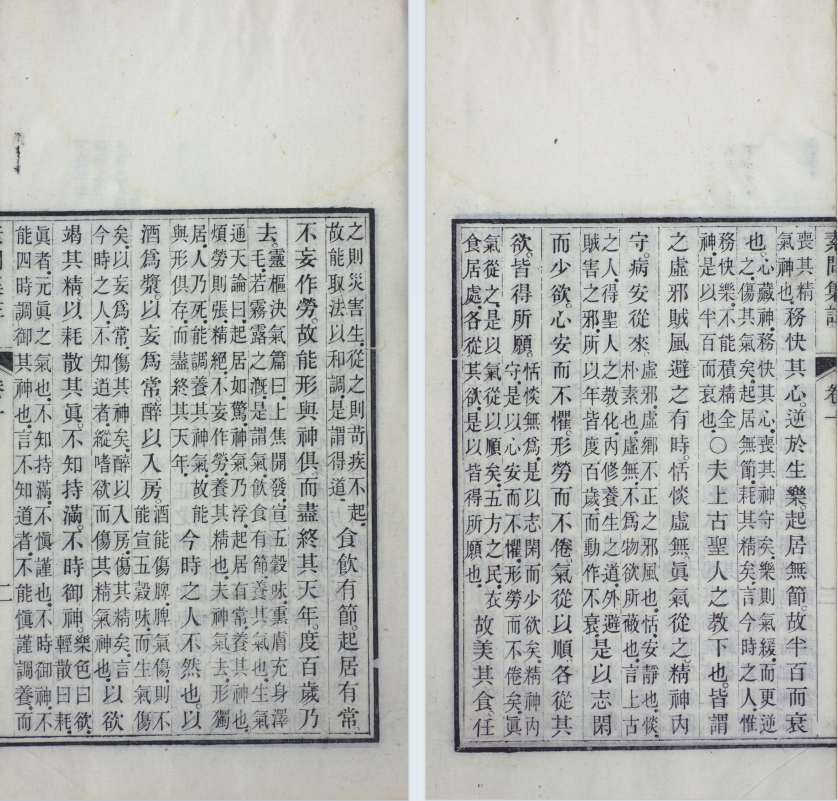 之則災害生。從之則苛疾不起。
故能取法以和調。是謂得道
食飲有節。起居有常。
不妄作勞。故能形與神俱。而盡終其天年。度百歲乃
去。
靈樞決氣篇曰。上焦開發。宣五穀味。熏膚充身澤
毛。若霧露之漑。是謂氣。飲食有節。養其氣也。生氣
通天論曰。起居如驚。神氣乃浮。起居有常。養其神也。
煩勞則張。精絕。不妄作勞。養其精也。夫神氣去。形獨
居。人乃死。能調養其神氣。故能
與形俱存。而盡終其天年。
今時之人不然也。以
酒爲漿。以妄爲常。醉以入房。
酒能傷脾。脾氣傷則不
能宣五穀味。而生氣傷
矣。以妄爲常。傷其神矣。醉以入房。傷其精矣。言
今時之人。不知道者。縱嗜欲而傷其精氣神也。
以欲
竭其精。以耗散其眞。不知持滿。不時御神。
樂色曰欲。
輕散曰耗。
眞者。元眞之氣也。不知持滿。不愼謹也。不時御神。不
能四時調御其神也。言不知道者。不能愼謹調養。而
二
素問集註
卷一
喪其精
氣神也。
務快其心。逆於生樂。起居無節。故半百而衰
也。
心藏神。務快其心。喪其神守矣。樂則氣緩。而更逆
之。傷其氣矣。起居無節。耗其精矣。言今時之人。惟
務快樂。不能積精全
神。是以半百而衰也。
○夫上古聖人之教下也。皆謂
之虛邪賊風。避之有時。恬惔虛無。眞氣從之。精神內
守。病安從來。
虛邪。虛鄉不正之邪風也。恬。安靜也。惔。
朴素也。虛無。不爲物欲所蔽也。言上古
之人。得聖人之教化。內修養生之道。外避
賊害之邪。所以年皆度百歲。而動作不衰。
是以志閑
而少欲。心安而不懼。形勞而不倦。氣從以順。各從其
欲。皆得所願。
恬惔無爲。是以志閑而少欲矣。精神內
守。是以心安而不懼。形勞而不倦矣。眞
氣從之。是以氣從以順矣。五方之民。衣
食居處。各從其欲。是以皆得所願也。
故美其食。任